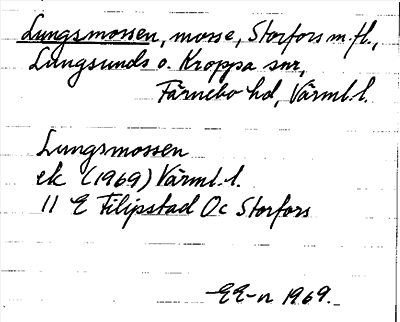 Lungsmossen, mosse, Storfors m.fl.,
Lungsunds o. Kroppa snr,
Färnebo hd, Värml. l.
Lungsmossen
ek (1969) Värml. l.
11 E Filipstad Oc Storfors
EE-n 1969.